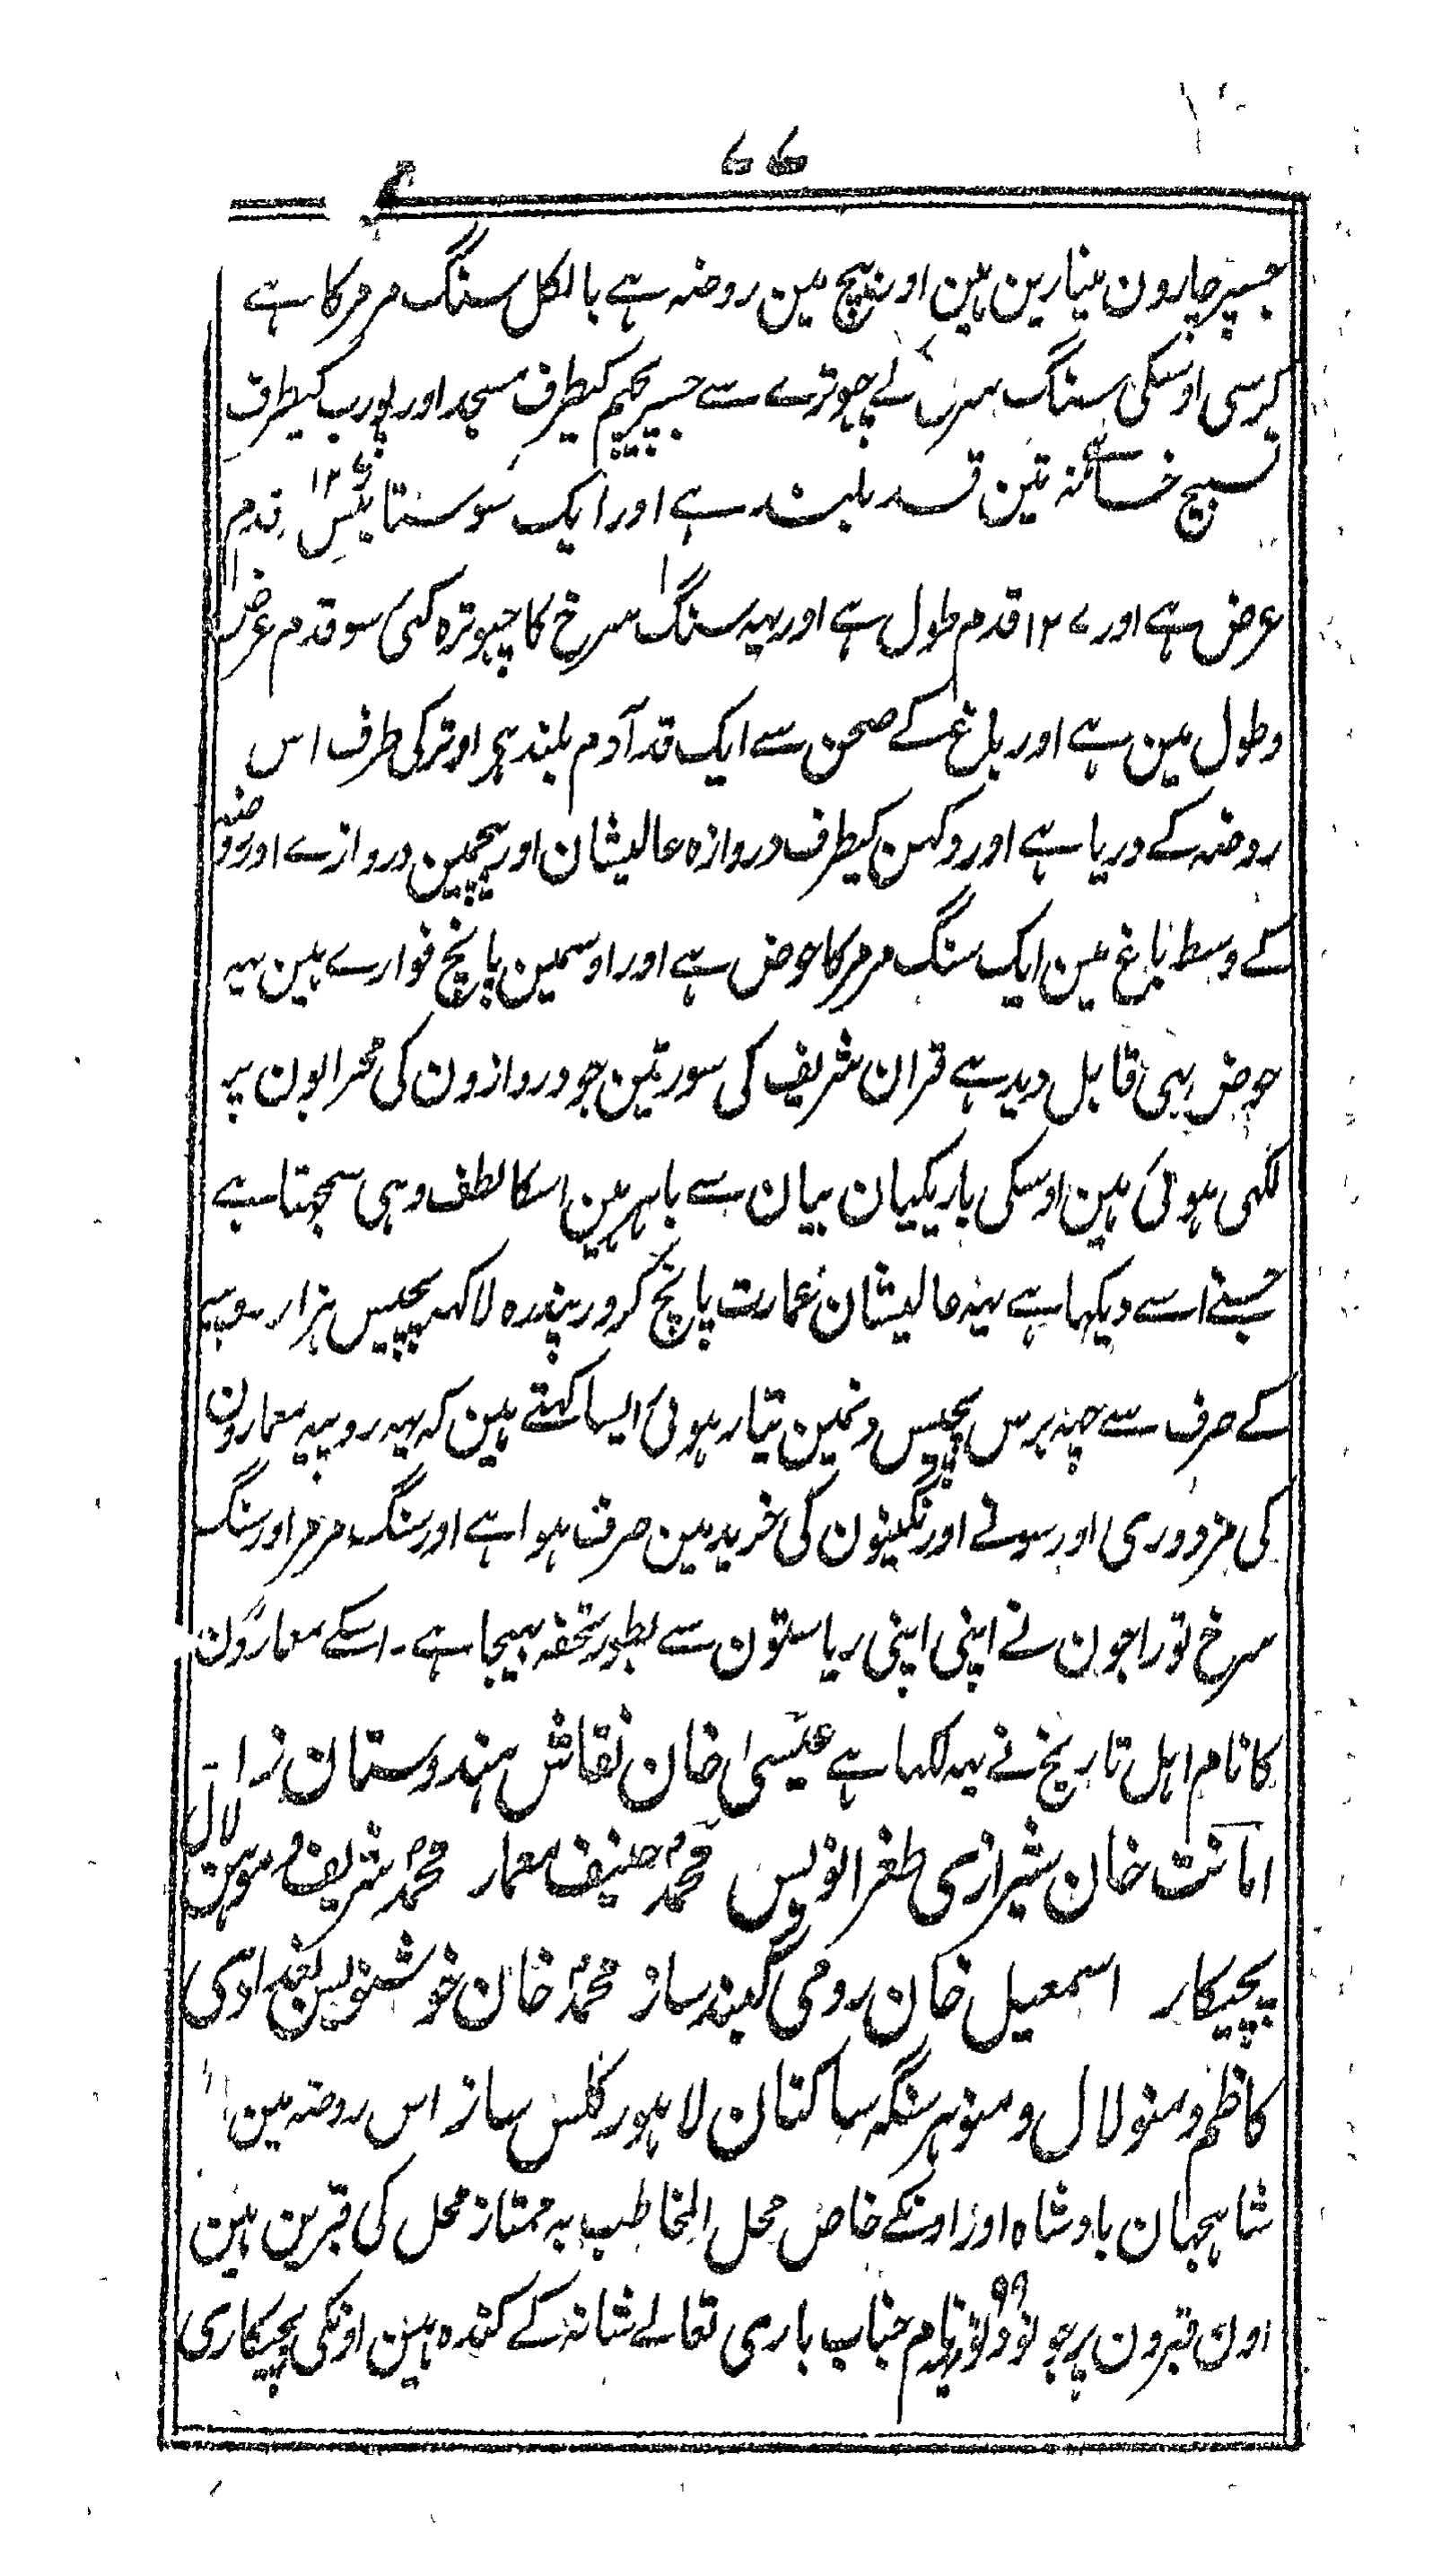 ۷۷
جسپر چارون مینارین ہین اور بیچ مین روضہ ہے بالکل سنگ مرمر کا ہے
کرسی اوسکی سنگ سرخ کے چبوترے سے جسپر پچھم کیطرف مسجد اور پورب کیطرف
تسبیح خانہ ہے تین قد بلند ہے اور ایک سو ستائیس ۱۲۷ قدم
عرض ہے اور ۱۲۷ قدم طول ہے اور یہہ سنگ سرخ کا چبوترہ کئی سو قدم عرض
و طول مین ہے اور باغ کے صحن سے ایک قد آدم بلند ہے اوتر کی طرف اس
روضہ کے دریا ہے اور دکہن کیطرف دروازہ عالیشان اور بیچمین دروازے اور روضہ
کے وسط باغ مین ایک سنگ مرمر کا حوض ہے اور اوسمین پانچ فوارے ہین یہہ
حوض بہی قابل دید ہے قران شریف کی سورتین جو دروازون کی محرابون پر
لکہی ہوئی ہین اوسکی باریکیان بیان سے باہر ہین اسکا لطف وہی سمجہتا ہے
جسنے اسے دیکہا ہے یہہ عالیشان عمارت پانچ کرور پندرہ لاکہہ پچیس ہزار روپیہ
کے صرف سے چہہ برس پچیس دنمین تیار ہوئی ایسا کہتے ہین کہ یہہ روپیہ معمارون
کی مزدوری اور سونے اور نگینون کی خرید مین صرف ہوا ہے اور سنگ مرمر اور سنگ
سرخ تو راجون نے اپنی اپنی ریاستون سے بطور تحفہ بہیجا ہے ۔ اسکے معمارون
کا نام اہل تاریخ نے یہہ لکہا ہے عیسیٰ خان نقاش ہندوستان زا ۔
امانت خان شیرازی طغرا نویس محمد حنیف معمار محمد شریف و موہن لال
پچیکار اسمعیل خان رومی گنبد ساز محمد خان خوشنویس بغدادی
کاظم و منولال و منوہر سنگہ ساکنان لاہور کلس ساز اس روضہ مین
شاہجہان بادشاہ اور اونکے خاص محل المخاطب بہ ممتاز محل کی قبرین ہین
اون قبرون پر جو نود و نو ۹۹ نام جناب باری تعالے شانہ کے کندہ ہین اونکی پچیکاری